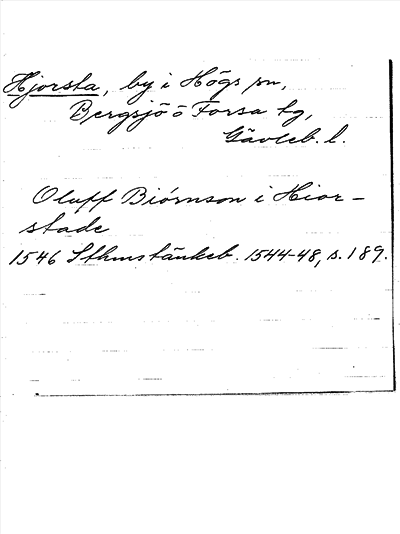 Hjorsta, by i Högs sn,
Bergsjö o Forsa tg,
Gävleb. l.
Oluff Biórnson i Hior-
stade
1546 Sthms tänkeb. 1544-48, s. 189.